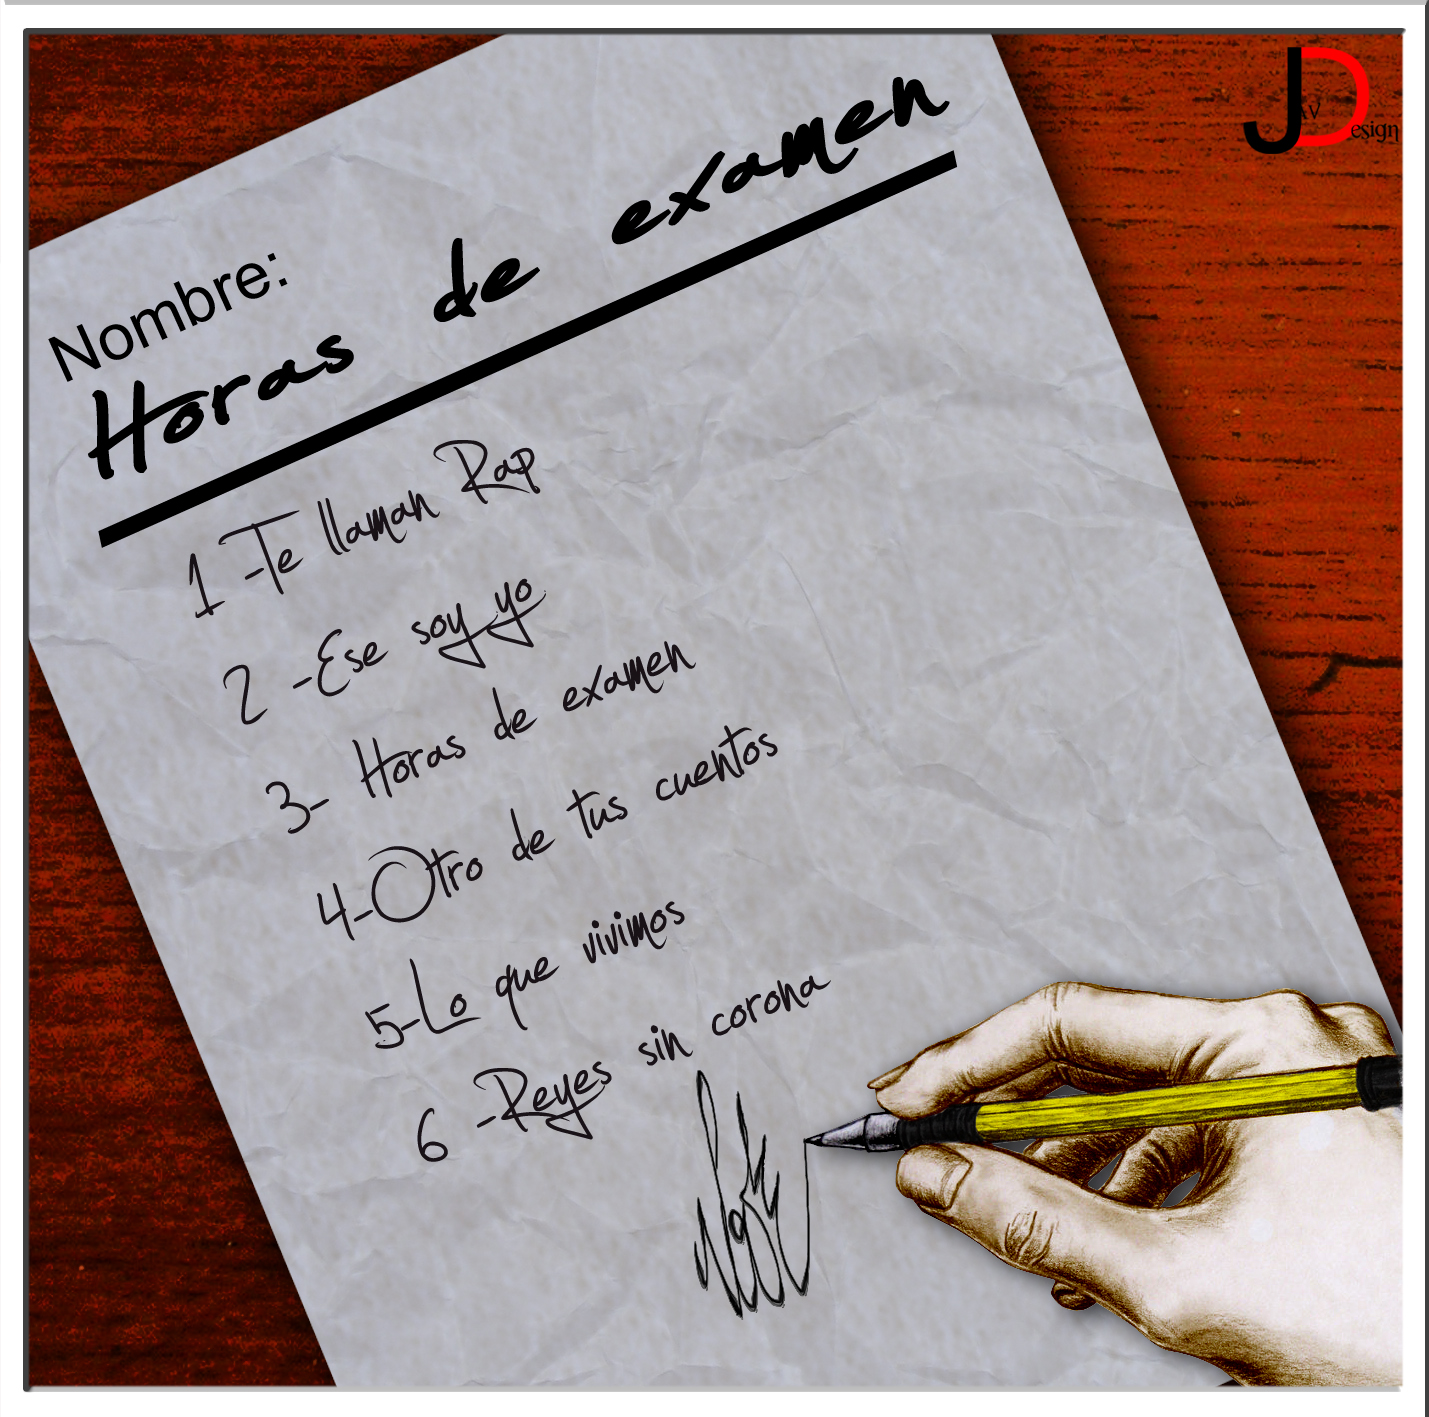 JAV Design
Nombre:
Horas de examen
1 -Te llaman Rap
2 -Ese soy yo
3- Horas de examen
4-Otro de tus cuentos
5-Lo que vivimos
6 -Reyes sin corona